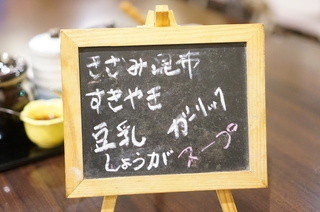 きざみ昆布
すきやき
豆乳 ガーリック
しょうが スープ